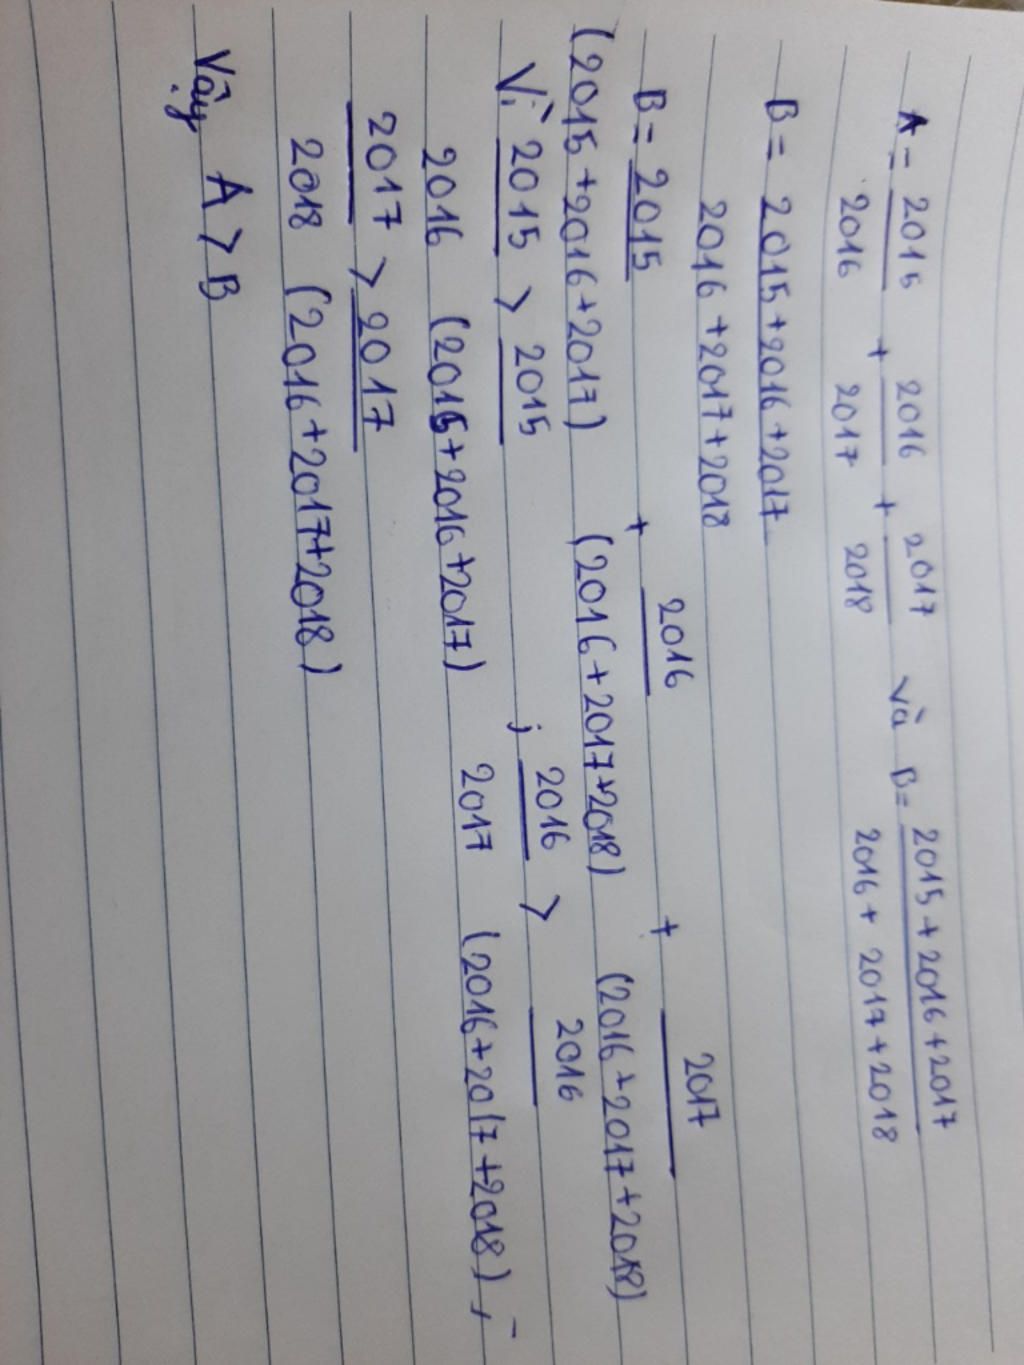 2015 2016 2017 2015 + 2016 + 2017
A = + + và B =
2016 2017 2018 2016 + 2017 + 2018
B = 2015 + 2016 + 2017
2016 + 2017 + 2018
B = 2015 + 2016 + 2017
(2015 + 2016 + 2017) (2016 + 2017 + 2018) (2016 + 2017 + 2018)
Vì 2015 > 2015 ; 2016 > 2016
2016 (2015 + 2016 + 2017) 2017 (2016 + 2017 + 2018) ;
2017 > 2017
2018 (2016 + 2017 + 2018)
Vậy A > B